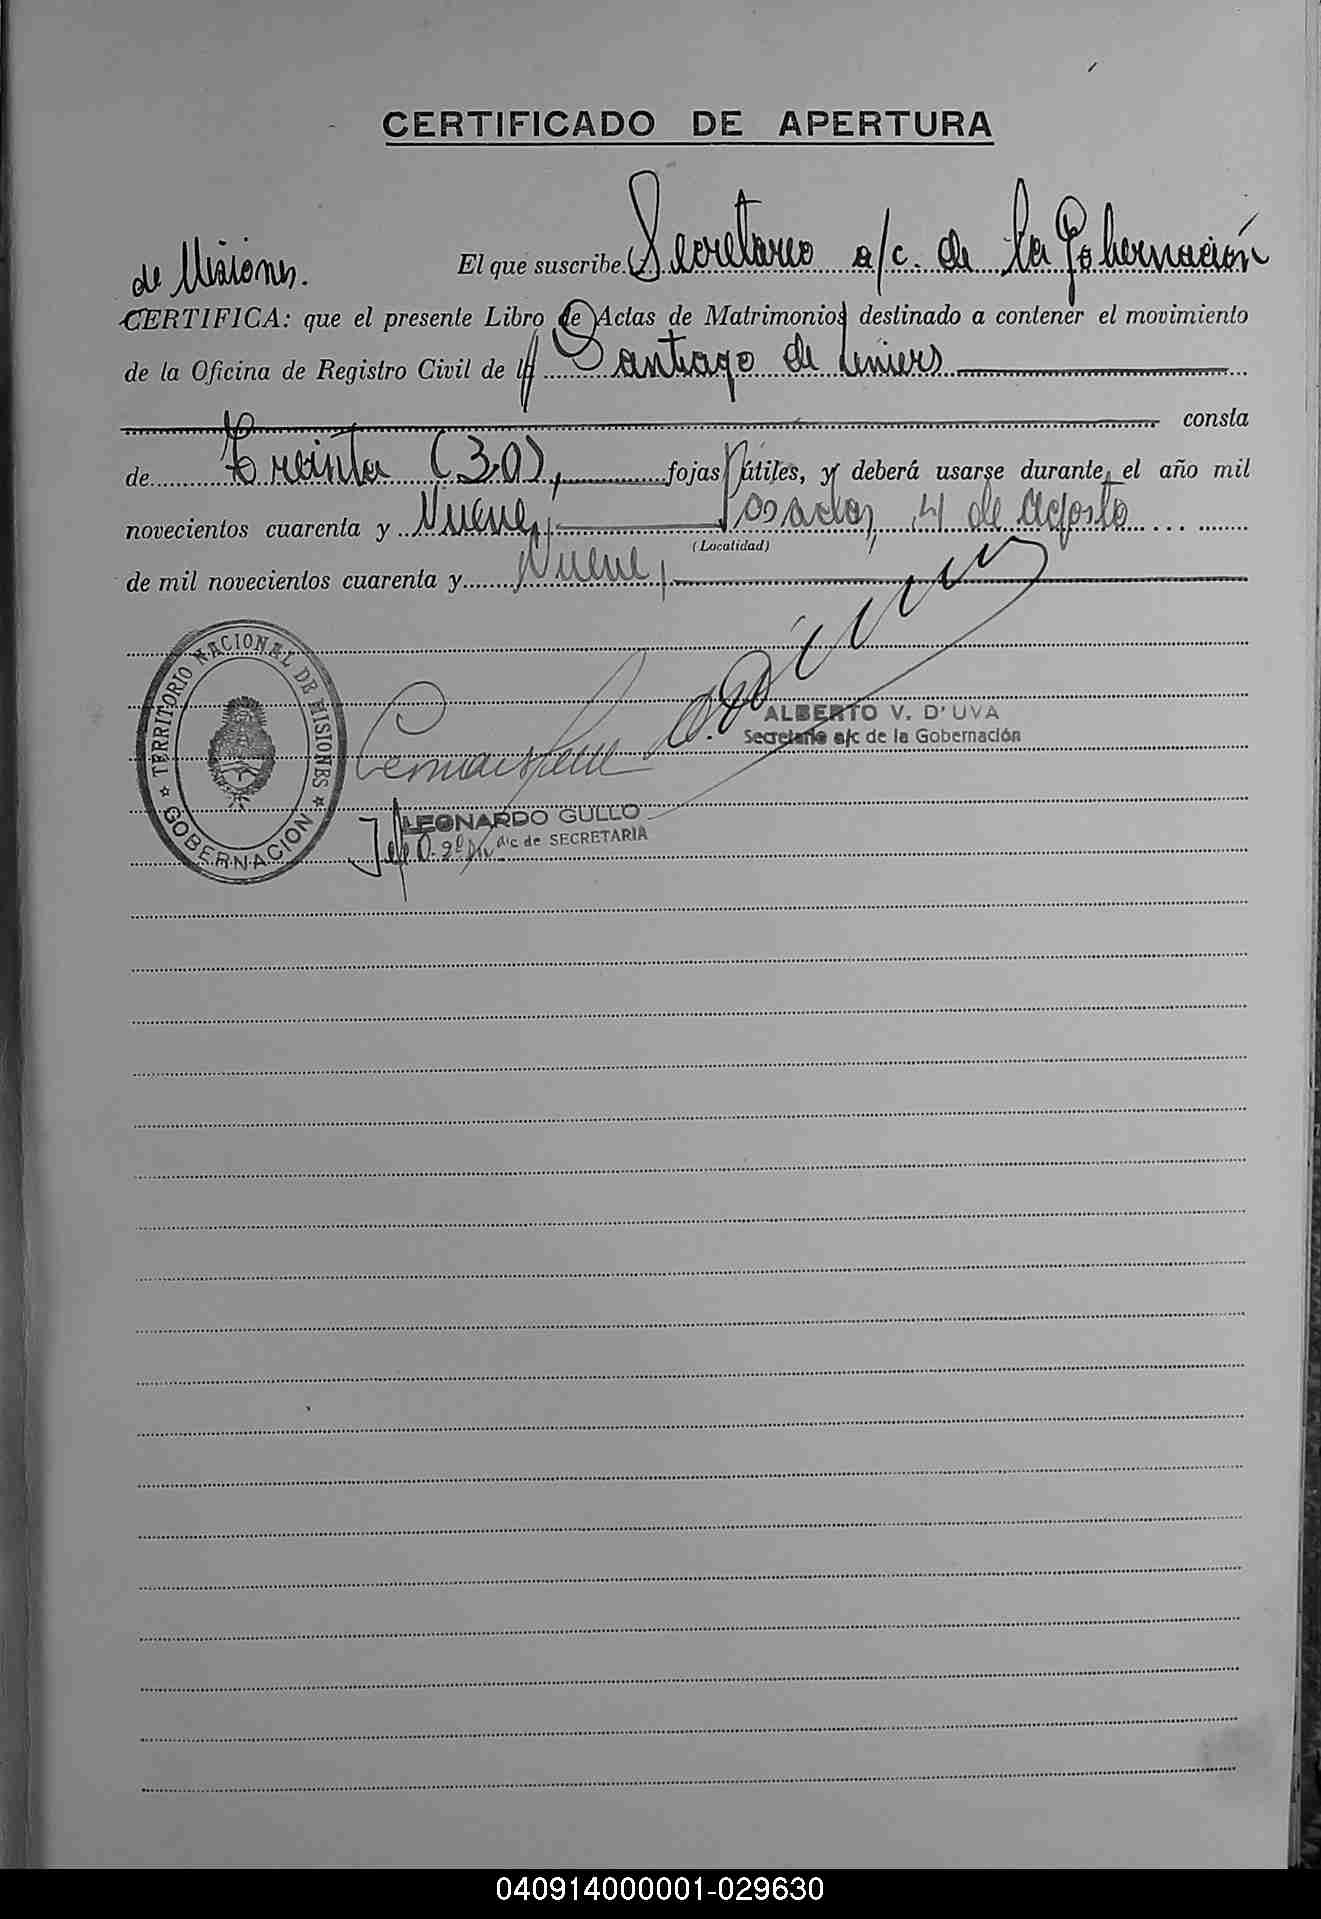 CERTIFICADO DE APERTURA
El que suscribe Secretario a/c. de la Gobernación
de Misiones.
CERTIFICA: que el presente Libro de Actas de Matrimonios destinado a contener el movimiento
de la Oficina de Registro Civil de Santiago de Liniers
consta
de Treinta (30), fojas útiles, y deberá usarse durante el año mil
novecientos cuarenta y Nueve, Posadas, 4 de Agosto
(Localidad)
de mil novecientos cuarenta y Nueve,
TERRITORIO NACIONAL DE MISIONES
GOBERNACION
ALBERTO V. D'UVA
Secretario a/c de la Gobernación
LEONARDO GULLO
a/c de SECRETARIA
040914000001-029630